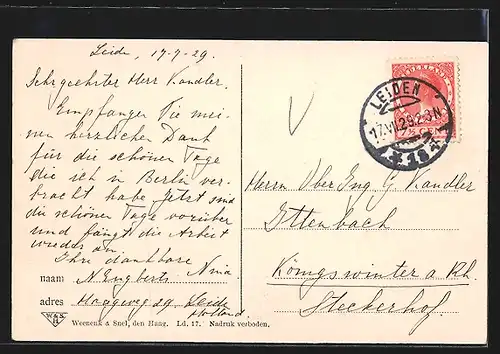 Leide, 17-7-29.
Sehrgeehrter Herr Kandler.
Empfangen Sie mei-
nen herzlichen Dank
für die schönen Tage
die ich in Berlin ver-
bracht habe. Jetzt sind
die schönen Tage vorüber
und fängt die Arbeit
wieder an.
Ihre dankbare
naam N Engberts Nina
adres Haagweg 59. Leide
Holland.
W&S
H
Weenenk & Snel, den Haag. Ld. 17. Nadruk verboden.
NEDERLAND
LEIDEN
17.VII.29.2-3N
* 1 *
V
Herrn Ober Ing G Kandler
Ittenbach
Königswinter a Rh.
Steckerhof.